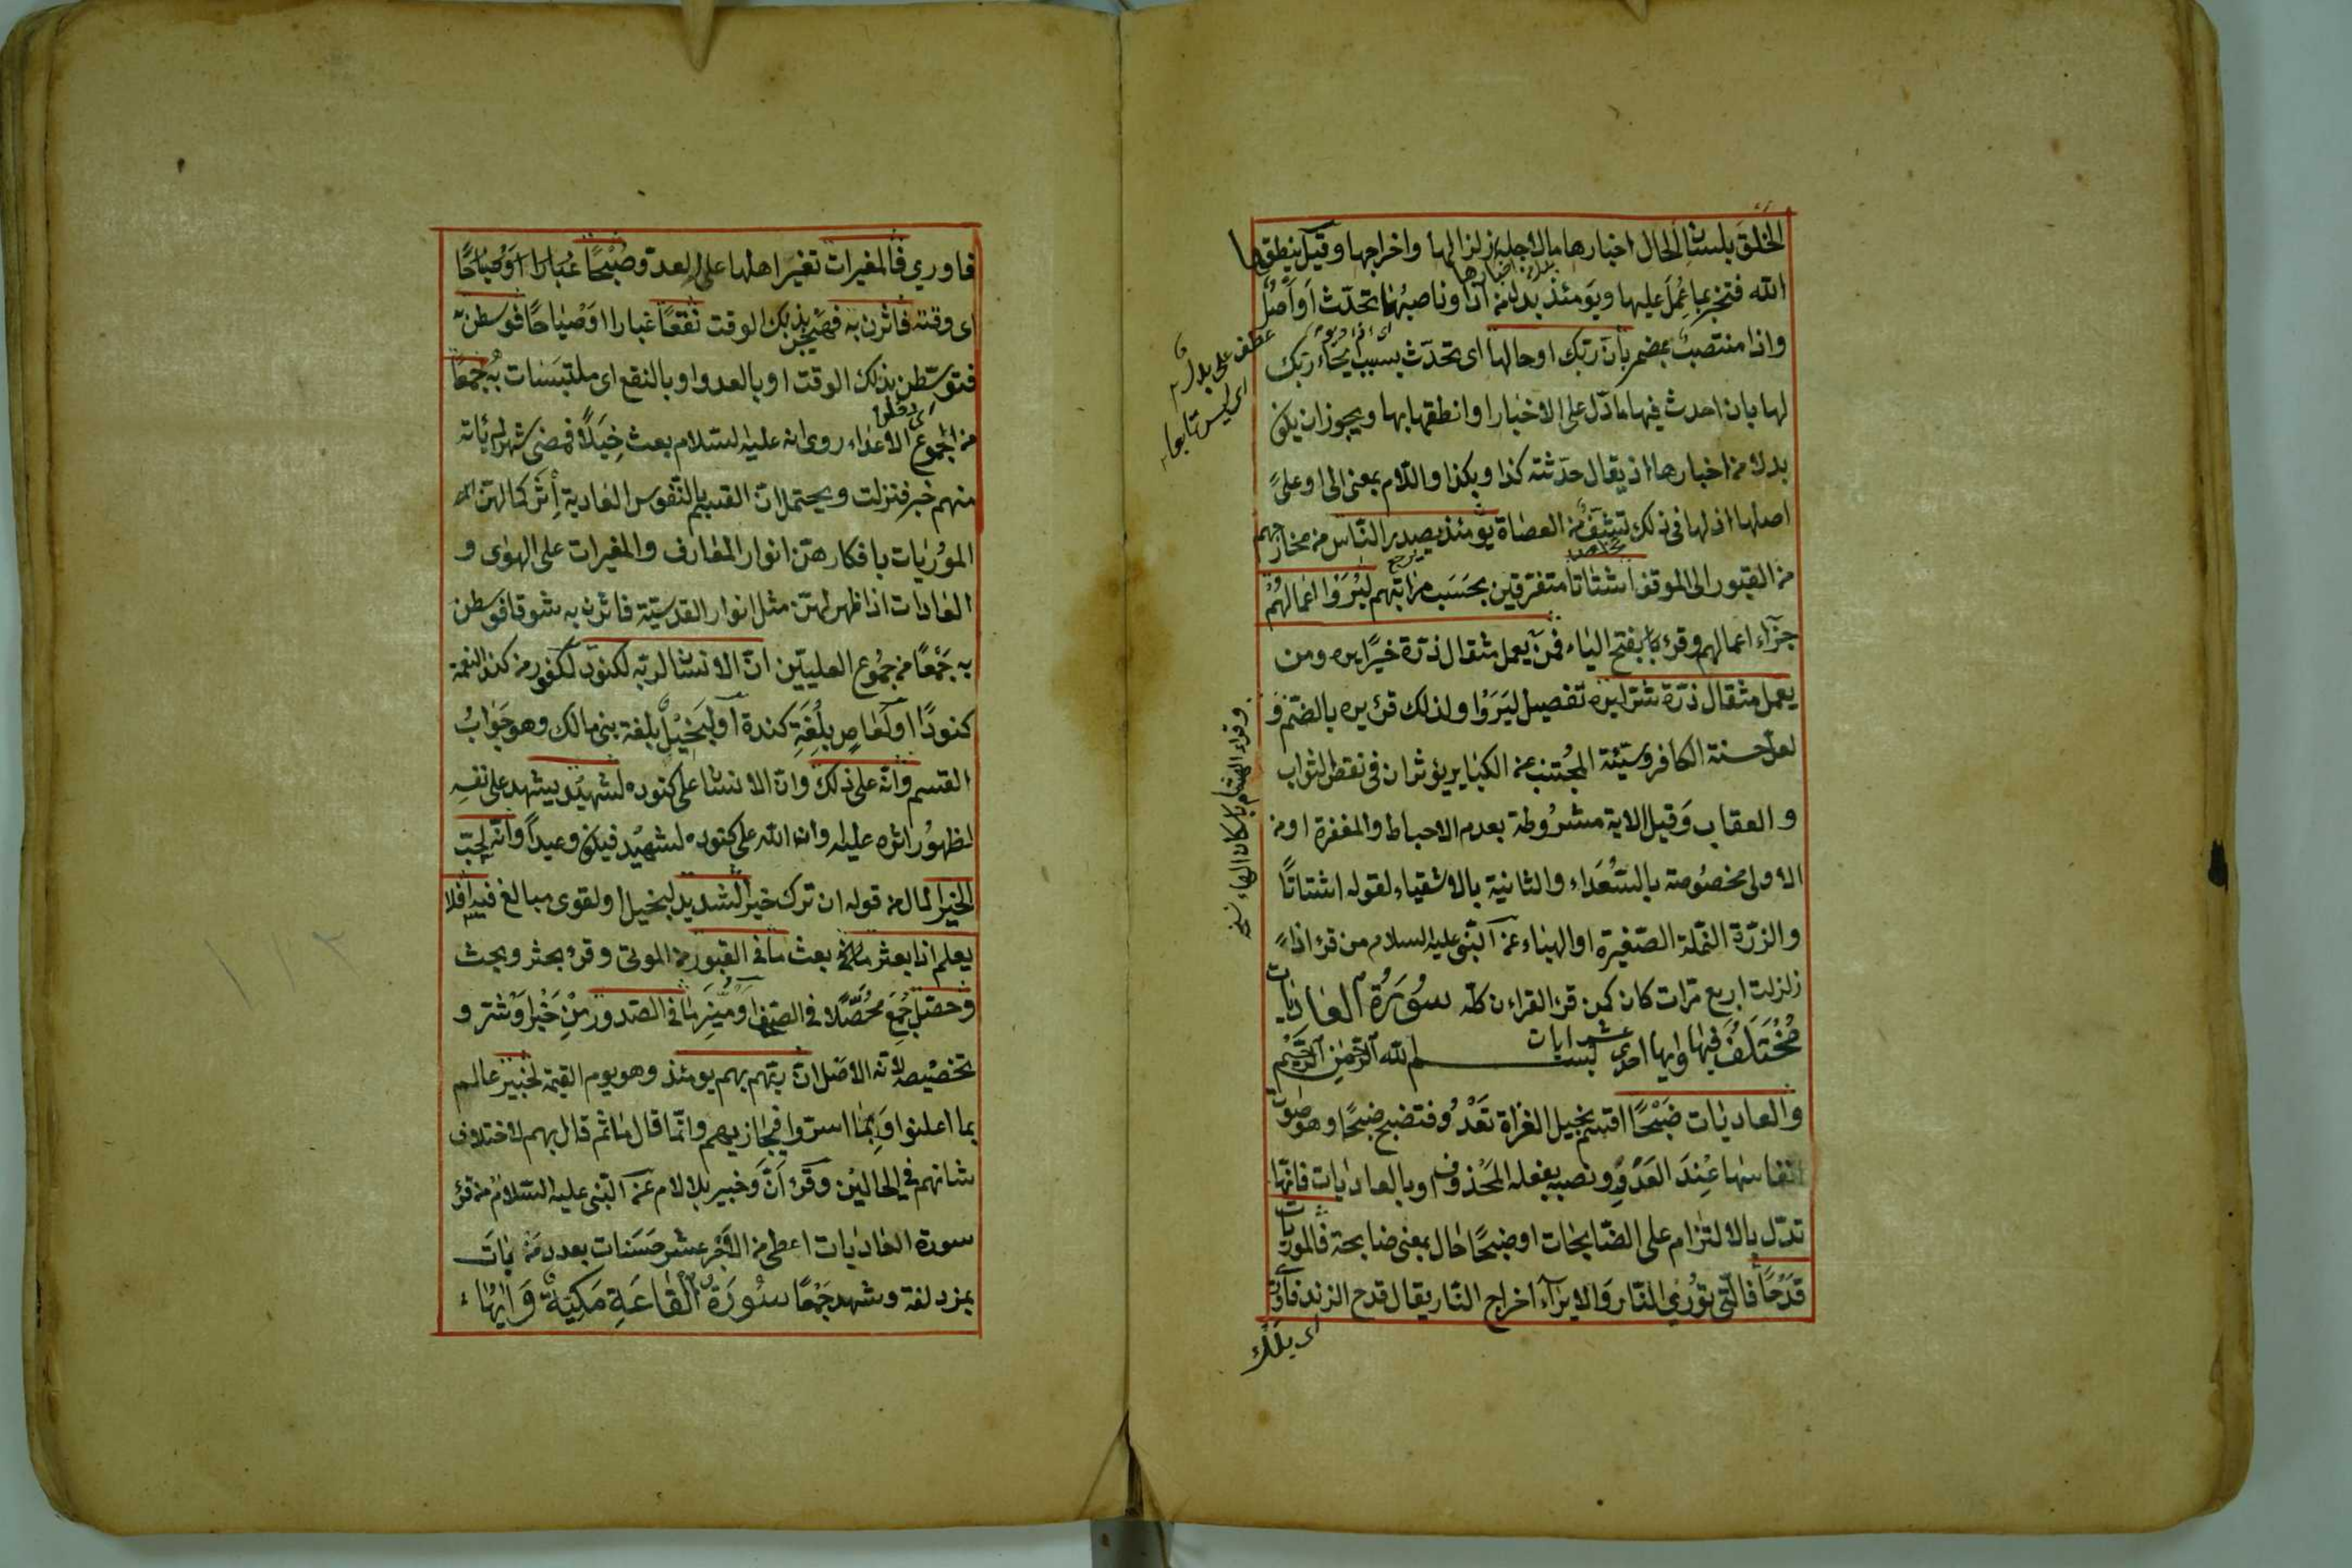 الخلق بلسان الحال اخبارها ما لاجله زلزالها واخراجها وقيل ينطقها
الله فتخبر بما عمل عليها ويومئذ بدل من اذا وناصبهما تحدث او اصل
بدل اخبارها
واذا منتصب بمضمر بان ربك اوحى لها اى تحدث بسبب ايحاء ربك
لها بان احدث فيها ما دل على الاخبار او انطقها بها ويجوز ان يكون
بدلا من اخبارها اذ يقال حدثته كذا وبكذا واللام بمعنى الى او على
اصلها اذ لها فى ذلك تشف من العصاة يومئذ يصدر الناس من مخارجهم
من القبور الى الموقف اشتاتا متفرقين بحسب مراتبهم ليروا اعمالهم
جزاء اعمالهم وقرئ بفتح الياء فمن يعمل مثقال ذرة خيرا يره ومن
يعمل مثقال ذرة شرا يره تفصيل ليروا ولذلك قرئ يره بالضم و
لعل حسنة الكافر وسيئة المجتنب عن الكبایر يؤثران فى نقص الثواب
والعقاب وقيل الاية مشروطة بعدم الاحباط والمغفرة او من
الاولى مخصوصة بالسعداء والثانية بالاشقياء لقوله اشتاتا
والذرة النملة الصغيرة او الهباء عن النبى عليه السلام من قرء اذا
زلزلت اربع مرات كان كمن قرء القران كله سورة العاديات
مختلف فيها وايها احدى عشر ايات بسم الله الرحمن الرحيم
والعاديات ضبحا اقسم بخيل الغزاة تعدو فتضبح ضبحا وهو صوت
انفاسها عند العدو ونصبه بفعله المحذوف او بالعاديات فانها
تدل بالالتزام على الضابحات او ضبحا حال بمعنى ضابحة فالموريات
قدحا فالتى تورى النار والايراء اخراج النار يقال قدح الزند فاورى
عطف على بدل
اى ليس تابعا
وقراء هشام باسكان الهاء نسخه
فاورى فالمغيرات تغير اهلها على العدو صبحا
اى وقته فاثرن به فهيجن بذلك الوقت نقعا غبارا او صياحا فوسطن به
فتوسطن بذلك الوقت او بالعدو او بالنقع اى ملتبسات به جمعا
من جموع الاعداء روى انه عليه السلام بعث خيلا فمضى شهر لم ياته
منهم خبر فنزلت ويحتمل ان القسم بالنفوس العادية اثر كمالهن
الموريات بافكارهن انوار المعارف والمغيرات على الهوى و
العادات اذا ظهر لهن مثل انوار القدسية فاثرن به شوقا فوسطن
به جمعا من جموع العليين ان الانسان لربه لكنود لكفور من كند النعمة
كنودا او لعاص بلغة كندة او لبخيل بلغة بنى مالك وهو جواب
القسم وانه على ذلك وان الانسان على كنوده لشهيد يشهد على نفسه
لظهور اثره عليه وان الله على كنوده لشهيد فيكون وعيدا وانه لحب
الخير المال من قوله ان ترك خيرا لشديد لبخيل او لقوى مبالغ فيه افلا
يعلم اذا بعثر بعث ما فى القبور من الموتى وقرئ بحثر وبحث
وحصل جمع محصلا فى الصحف او ميز ما فى الصدور من خير او شر و
تخصيصه لانه الاصل ان ربهم بهم يومئذ وهو يوم القيمة لخبير عالم
بما اعلنوا وبما اسروا فيجازيهم وانما قال ما ثم قال بهم لاختلاف
شانهم فى الحالين وقرئ ان وخبير بلا لام عن النبى عليه السلام من قرء
سورة العاديات اعطى من الاجر عشر حسنات بعدد من بات
بمزدلفة وشهد جمعا سورة القارعة مكية وايها